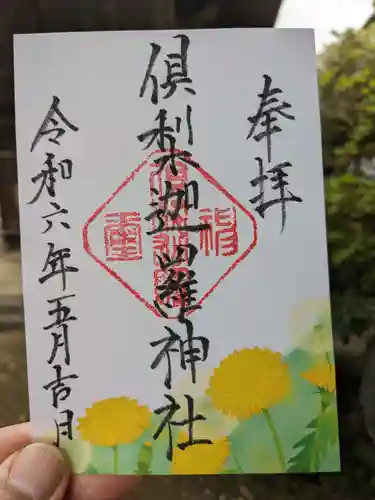 奉拝
倶利伽羅神社
令和六年五月吉日